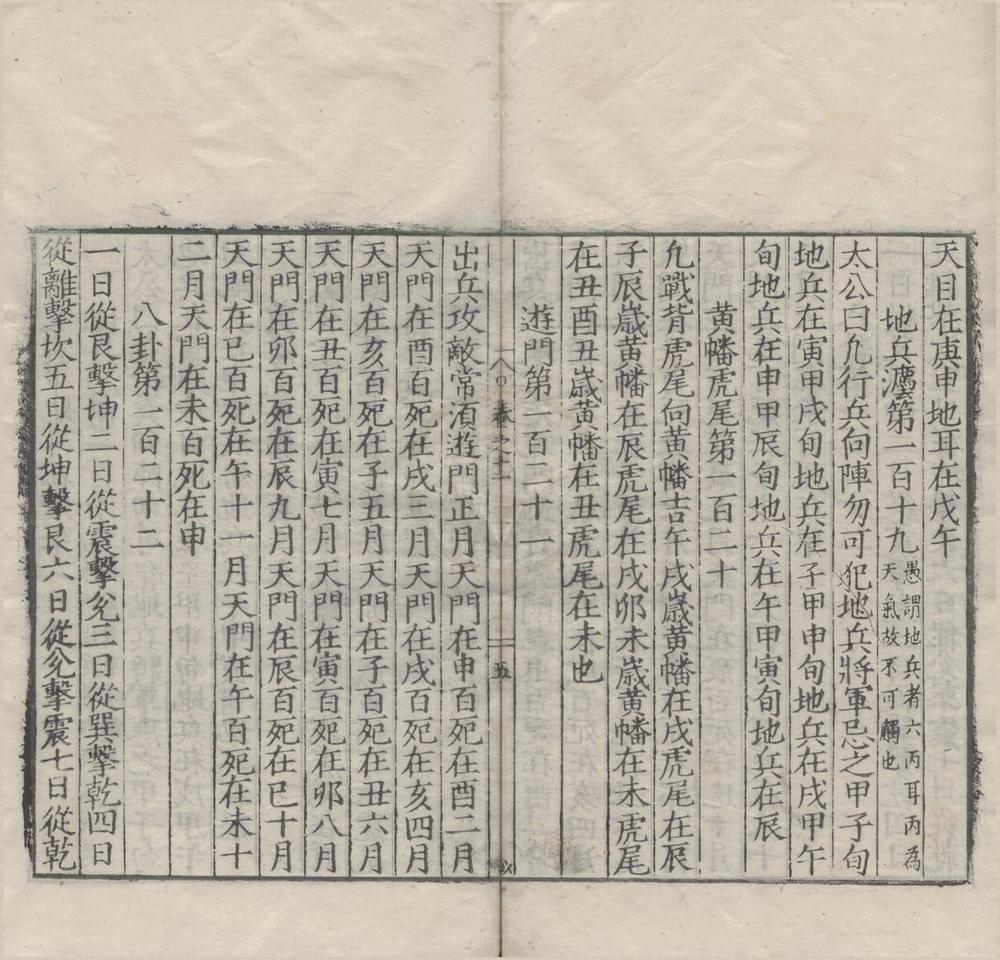 天目在庚申地耳在戊午
地兵灋第一百十九
愚謂地兵者六丙耳丙為
天氣故不可觸也
太公曰凢行兵向陣勿可犯地兵將軍忌之甲子旬
地兵在寅甲戌旬地兵在子甲申旬地兵在戌甲午
旬地兵在申甲辰旬地兵在午甲寅旬地兵在辰
黃幡虎尾第一百二十
凢戰背虎尾向黃幡吉午戌嵗黃幡在戌虎尾在辰
子辰嵗黃幡在辰虎尾在戌卯未嵗黃幡在未虎尾
在丑酉丑嵗黃幡在丑虎尾在未也
遊門第一百二十一
卷之十
五
出兵攻敵常湏遊門正月天門在申百死在酉二月
天門在酉百死在戌三月天門在戌百死在亥四月
天門在亥百死在子五月天門在子百死在丑六月
天門在丑百死在寅七月天門在寅百死在卯八月
天門在卯百死在辰九月天門在辰百死在巳十月
天門在巳百死在午十一月天門在午百死在未十
二月天門在未百死在申
八卦第一百二十二
一日從艮擊坤二日從震擊兊三日從巽擊乾四日
從離擊坎五日從坤擊艮六日從兊擊震七日從乾